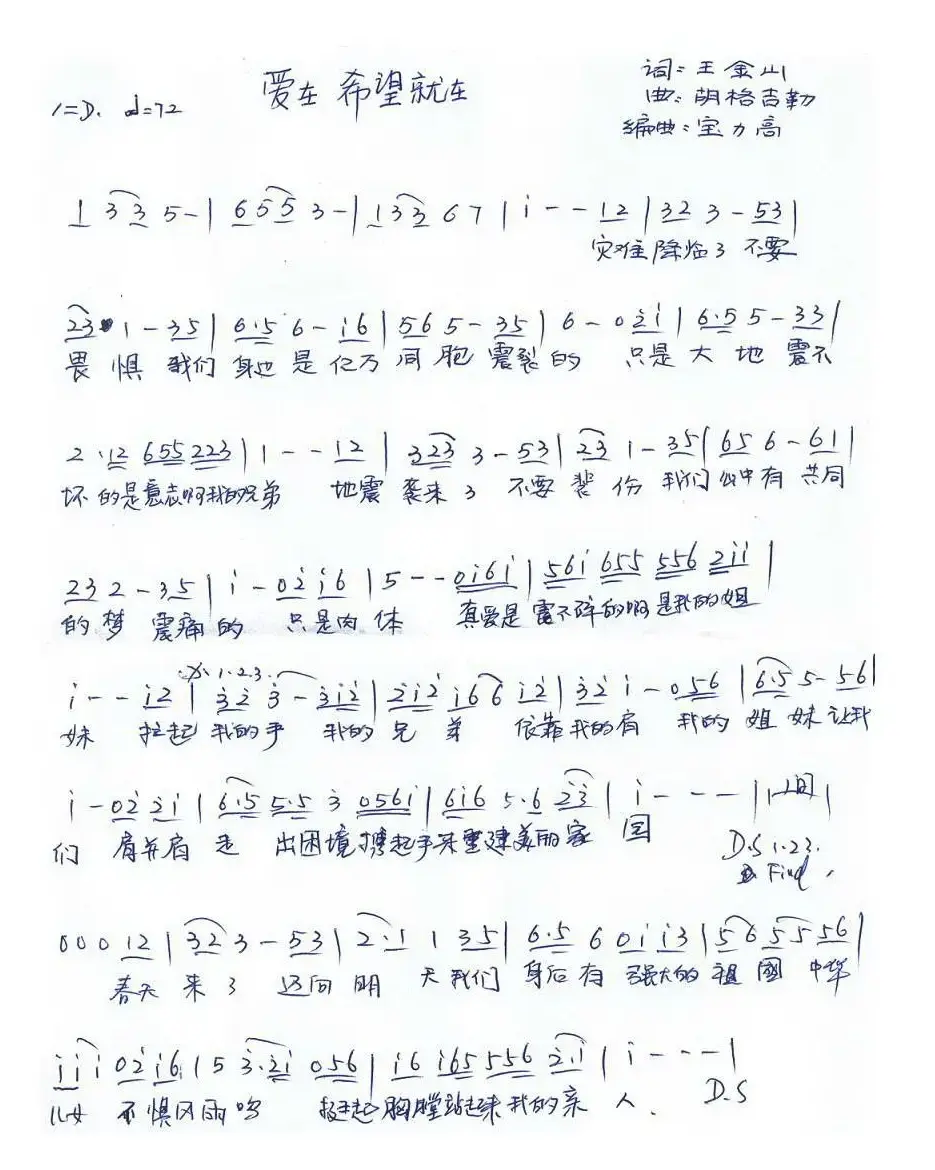 爱在希望就在
词:王金山
1=D. ♩=72
曲:胡格吉勒
编曲:宝力高
1 3 3 5 - | 6 5 5 3 - | 1 3 3 6 7 | i - - 1 2 | 3 2 3 - 5 3 |
灾难降临了 不要
2 3 1 - 3 5 | 6·5 6 - i 6 | 5 6 5 - 3 5 | 6 - 0 2̇ i | 6·5 5 - 3 3 |
畏惧 我们身边是亿万同胞 震裂的 只是大地 震不
2·1 2 6 5 5 2 2 3 | 1 - - 1 2 | 3 2 3 3 - 5 3 | 2 3 1 - 3 5 | 6 5 6 - 6 1 |
坏的是意志啊我的兄弟 地震袭来了 不要 我们心中有共同
2 3 2 - 3 5 | i - 0 2̇ i 6 | 5 - - 0 i 6 i | 5 6 i 6 5 5 5 5 6 2̇ i i |
的梦 震痛的 只是肉体 真爱是震不碎的啊是我的姐
𝄋 1·2·3·
i - - i 2̇ | 3̇ 2̇ 3̇ - 3̇ i 2̇ | 2̇ i 2̇ i 6 6 i 2̇ | 3̇ 2̇ i - 0 5 6 | 6·5 5 - 5 6 |
妹 拉起我的手 我的兄弟 依靠我的肩 我的姐妹让我
i - 0 2̇ 2̇ i | 6·5 5·5 3 0 5 6 i | 6 i 6 5·6 2̇ 3̇ | i - - - | 间 |
们 肩并肩 走出困境携起手来重建美丽家园
D.S 1·2 3.
Fine
0 0 0 1 2 | 3 2 3 - 5 3 | 2·1 1 3 5 | 6·5 6 0 i i 3 | 5 6 5 5 5 6 |
春天来了 迈向明天我们身后有强大的祖國 中华
i i i 0 2̇ i 6 | 5 3̇·2̇ i 0 5 6 | i 6 i 6 5 5 5 6 2̇·i | i - - - |
儿女 不惧风雨 挺起胸膛站起来我的亲人.
D.S